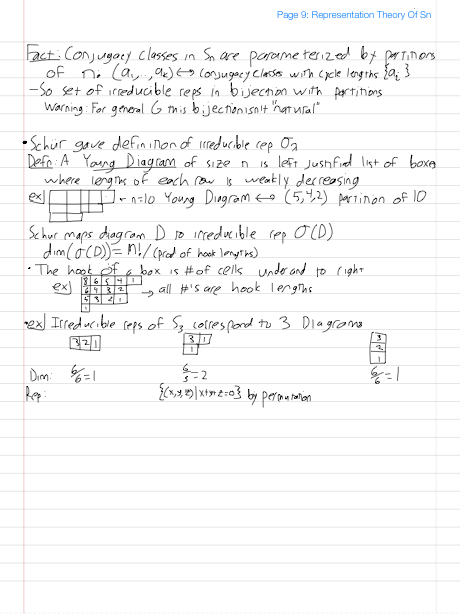 Page 9: Representation Theory Of Sn
Fact: Conjugacy classes in Sn are parameterized by partitions
of n. (a₁, ..., aₖ) ↔ conjugacy classes with cycle lengths {aᵢ}
- So set of irreducible reps in bijection with partitions
Warning: For general G this bijection isn't "natural"
• Schur gave definition of irreducible rep σ_λ
Defn: A Young Diagram of size n is left justified list of boxes
where lengths of each row is weakly decreasing
ex) ← n=10 Young Diagram ↔ (5,4,2) partition of 10
Schur maps diagram D to irreducible rep σ(D)
dim(σ(D)) = n!/(prod of hook lengths)
• The hook of a box is # of cells under and to right
ex) 8 6 5 4 1
6 4 3 2
5 3 2 1
1
→ all #'s are hook lengths
• ex) Irreducible reps of S₃ correspond to 3 Diagrams
3 2 1
3 1
1
3
2
1
Dim: 6/6 = 1 6/3 = 2 6/6 = 1
Rep: {(x,y,z) | x+y+z=0} by permutation